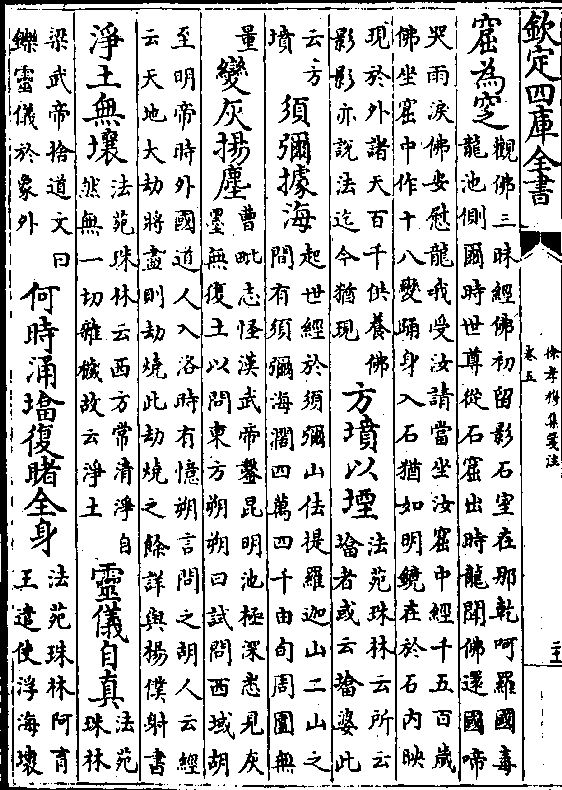 欽定四庫全書
徐孝穆集箋注
卷五
二十
窟為窆
觀佛三昧經佛初留影石室在那乾呵羅國毒
龍池側爾時世尊從石窟出時龍聞佛還國啼
哭雨淚佛安慰龍我受汝請當坐汝窟中經千五百歲
佛坐窟中作十八變踊身入石猶如明鏡在於石內映
現於外諸天百千供養佛
影影亦說法迄今猶現
方墳以堙
法苑珠林云所云
㙮者或云㙮婆此
云方
墳
須彌據海
起世經於須彌山佉提羅迦山二山之
間有須彌海濶四萬四千由旬周圍無
量
變灰揚塵
曹毗志怪漢武帝鑿昆明池極深悉見灰
墨無復土以問東方朔朔曰試問西域胡
至明帝時外國道人入洛時有憶朔言問之胡人云經
云天地大劫將盡則劫燒此劫燒之餘詳與楊僕射書
淨土無壤
法苑珠林云西方常清淨自
然無一切雜穢故云淨土
靈儀自真
法苑
珠林
梁武帝捨道文曰
鑠靈儀於象外
何時涌㙮復睹全身
法苑珠林阿育
王遣使浮海壞